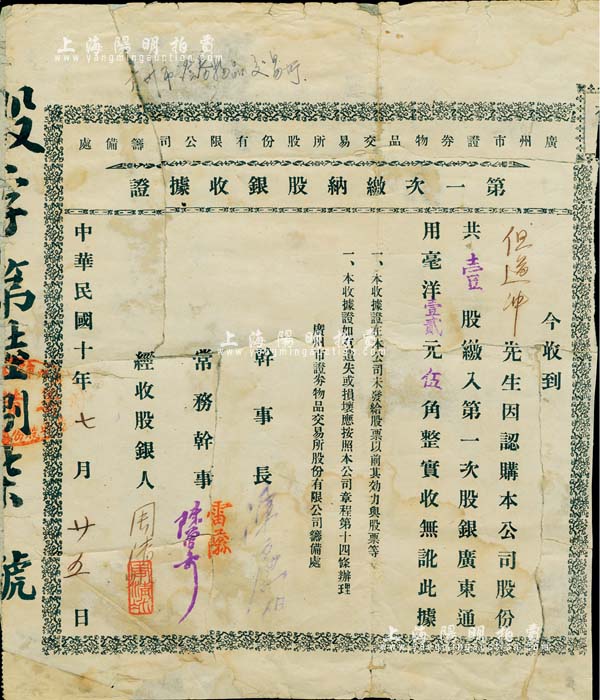 上海陽明拍賣
www.yangmingauction.com
廣州市證券物品交易所股份有限公司籌備處
第一次繳納股銀收據證
今收到
但道冲 先生因認購本公司股份
共壹股繳入第一次股銀廣東通
用毫洋壹貳元伍角整實收無訛此據
一、本收據證在本公司未發給股票以前其効力與股票等
一、本收據證如遺失或損壞應按照本公司章程第十四條辦理
廣州市證券物品交易所股份有限公司籌備處
幹事長
常務幹事
雷蔭
經收股銀人
中華民國十年七月廿五日
股字第 號
上海陽明拍賣
www.yangmingauction.com
上海陽明拍賣
www.yangmingauction.com